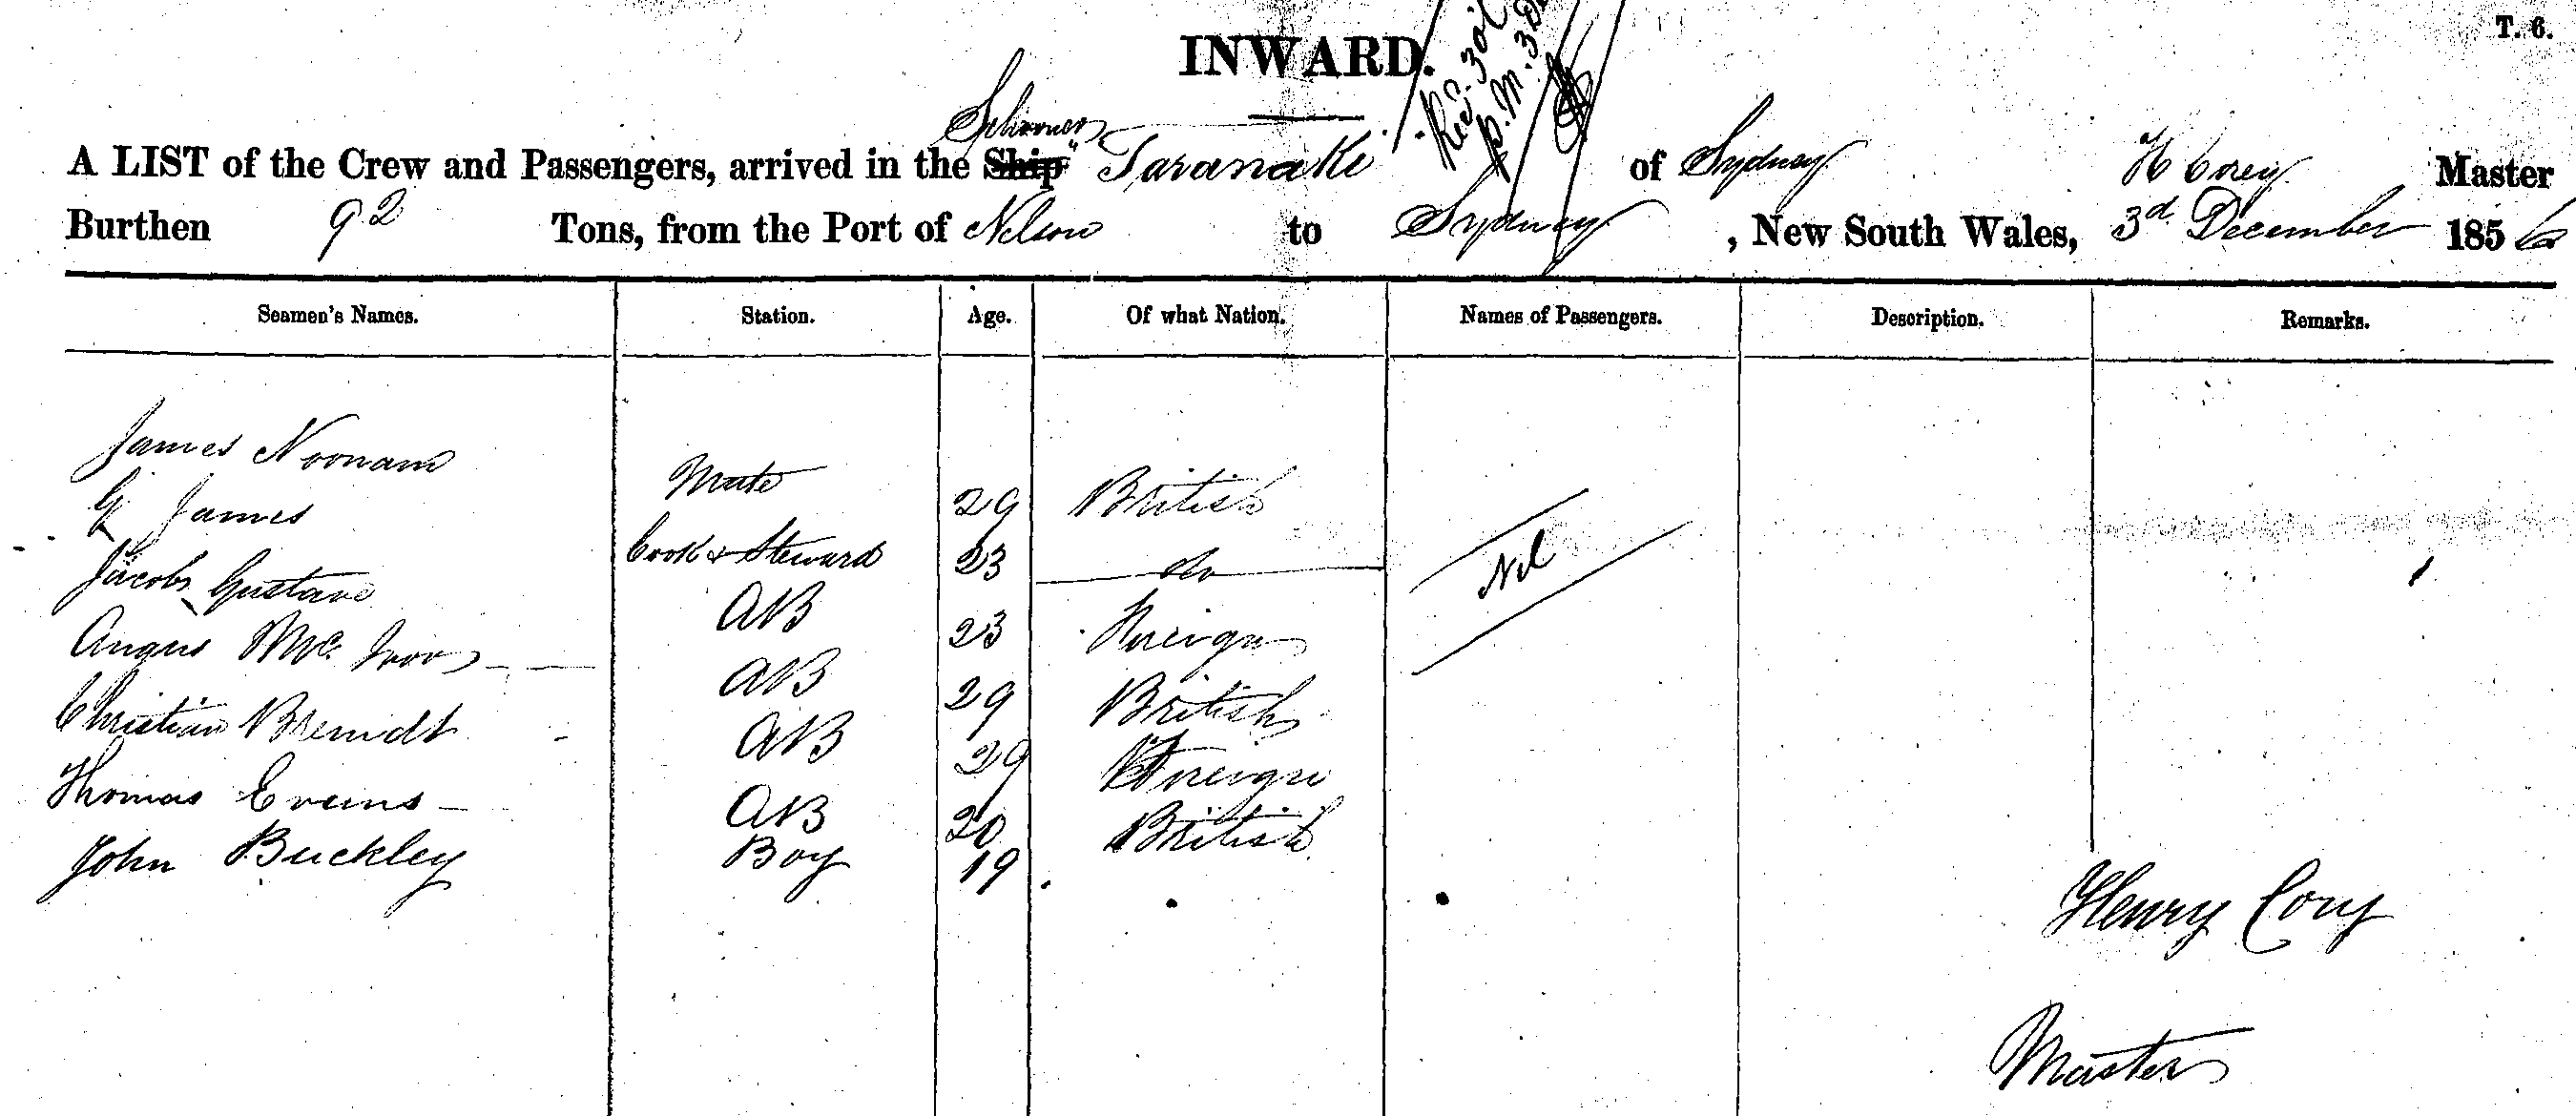 T. 6.
INWARD.
Schooner
A LIST of the Crew and Passengers, arrived in the Ship "Taranaki" of Sydney H Corey Master
Burthen 92 Tons, from the Port of Nelson to Sydney, New South Wales, 3d December 1856
Seamen's Names. Station. Age. Of what Nation. Names of Passengers. Description. Remarks.
James Noonan Mate 29 British
G James Cook & Steward 23 do Nil
Jacob Gustave AB 23 Foreign
Angus Mc AB 29 British
Christian Brendt AB 29 Foreign
Thomas Evans AB 20 British
John Buckley Boy 19
Henry Cory
Master